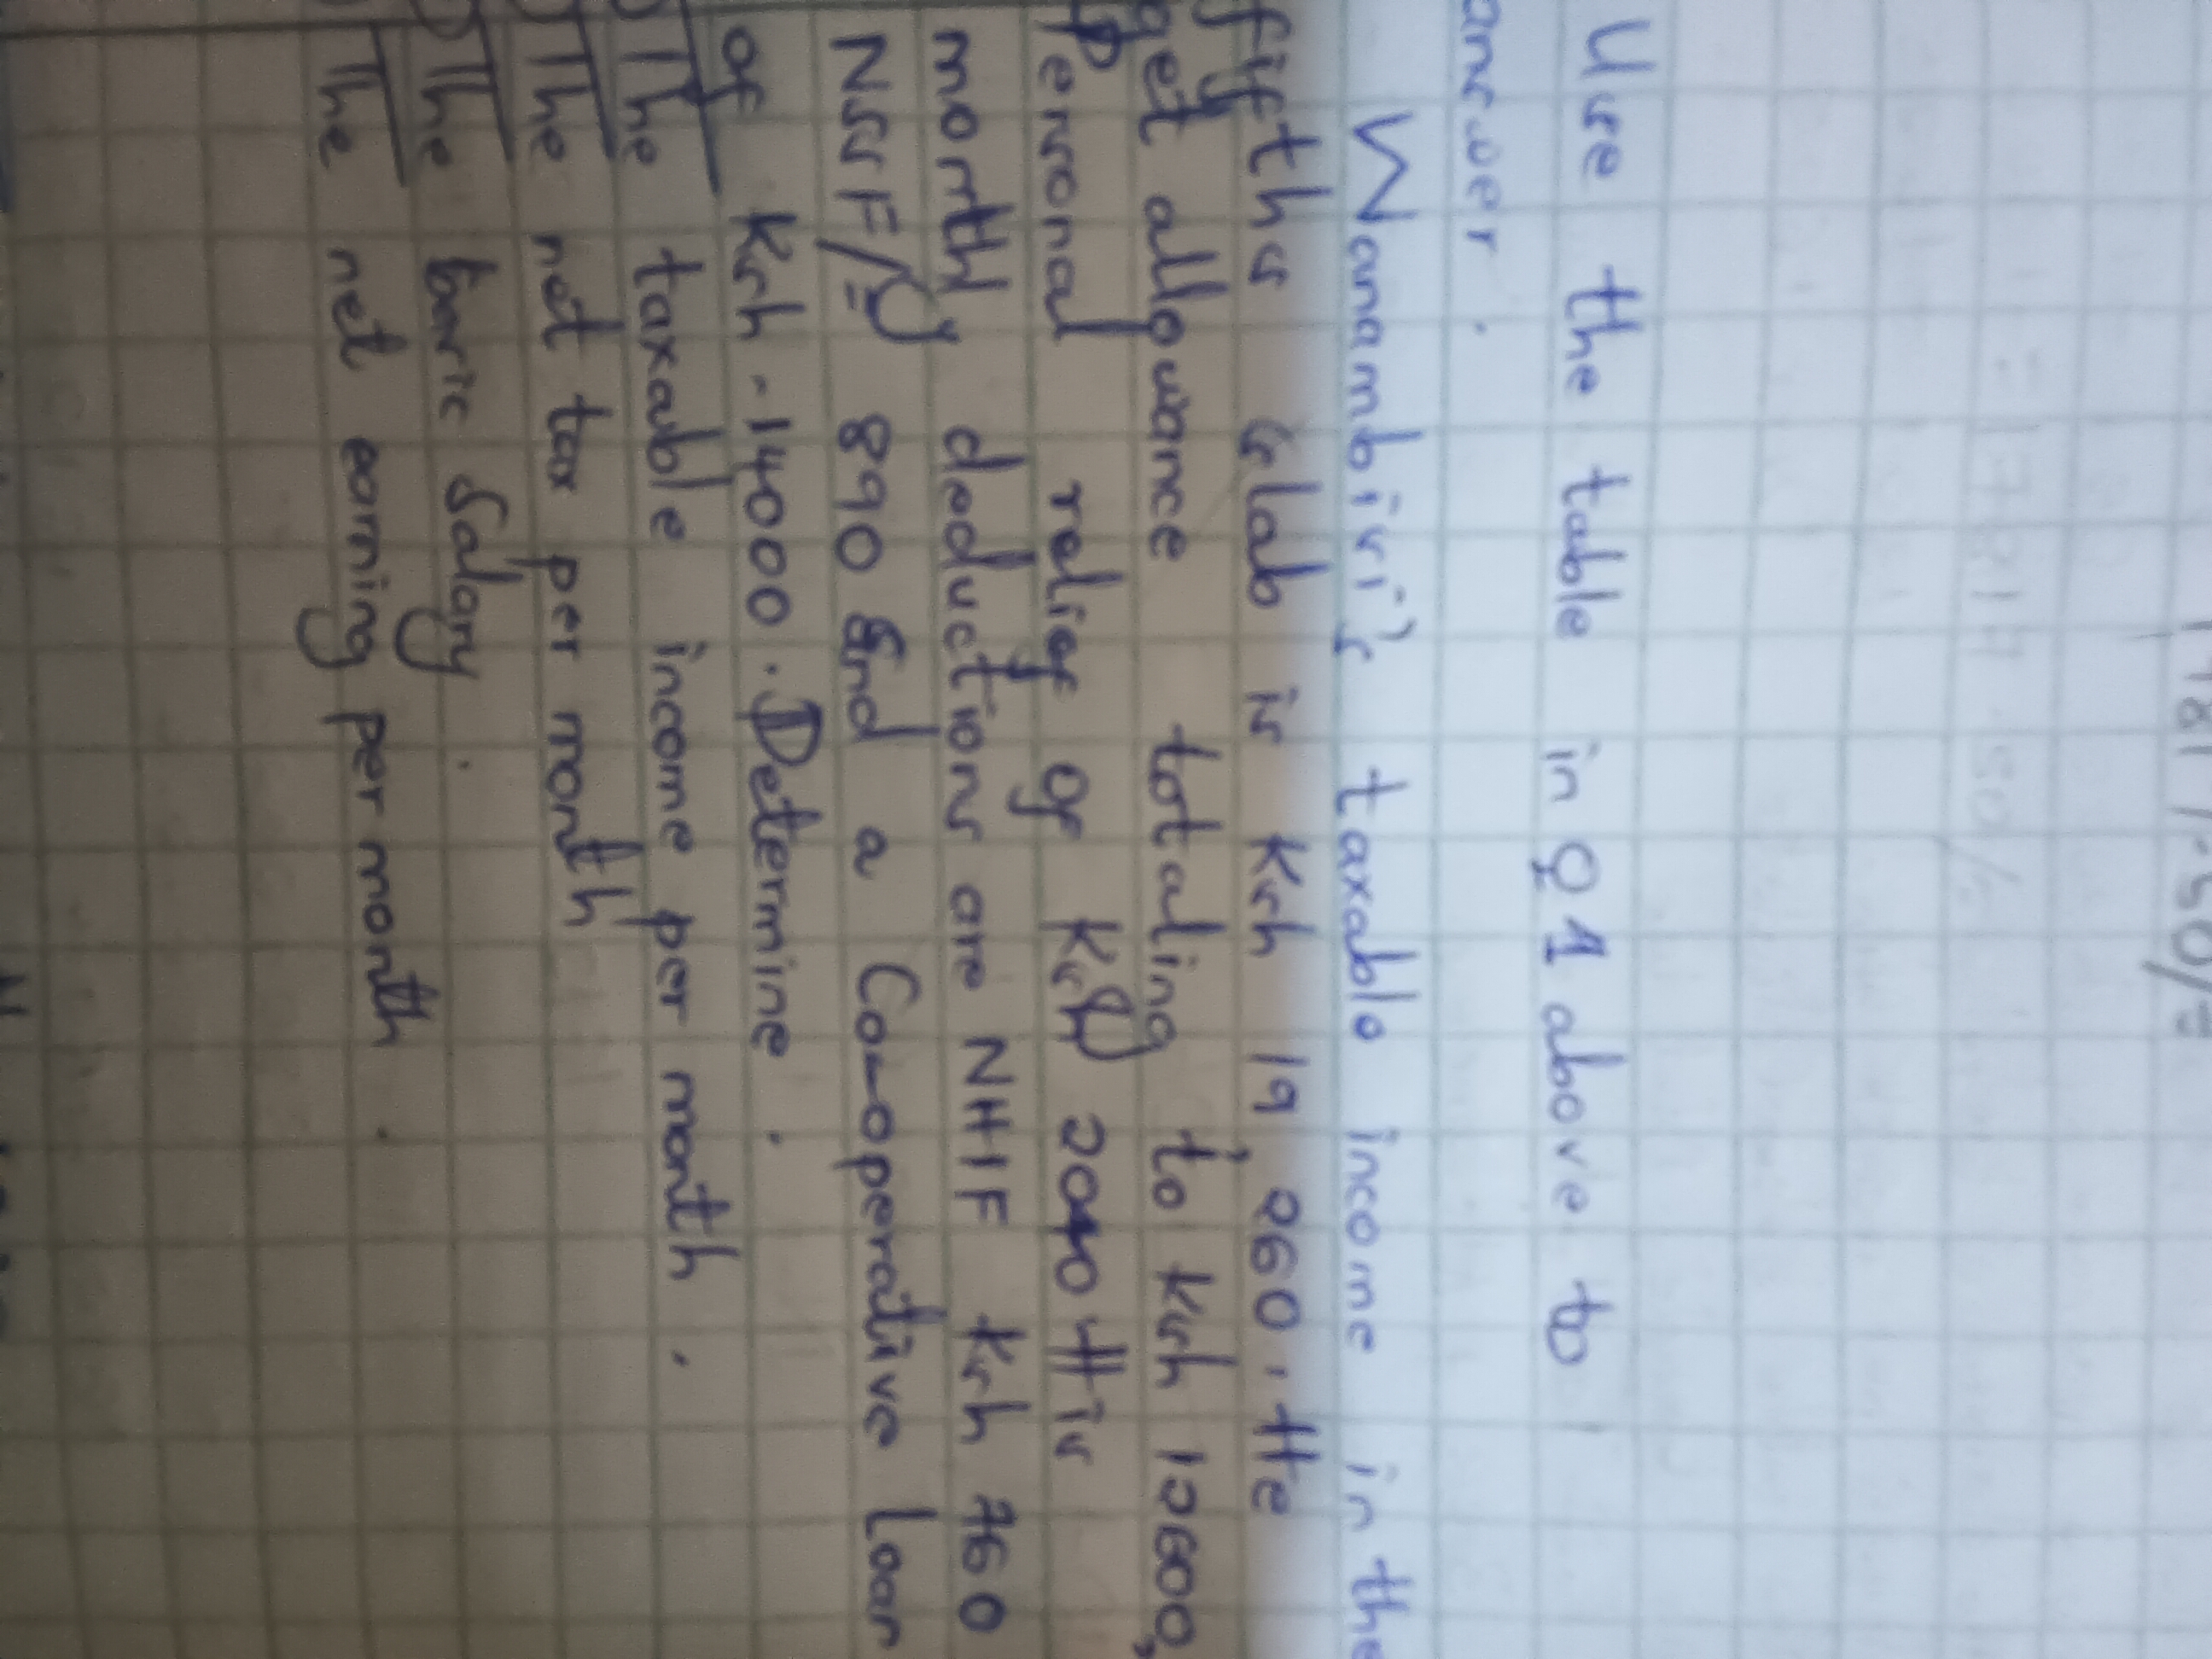 Use the table in Q1 above to
answer.
Wanambisi's taxable income in the
fifths slab is Ksh 19,260. He
get allowance totaling to Ksh 12600,
Personal relief of Ksh 2040 His
monthly deductions are NHIF Ksh 760
NSSF 890 and a Co-operative Loan
of Ksh-14000. Determine.
The taxable income per month.
The net tax per month
The basic Salary.
The net earning per month.